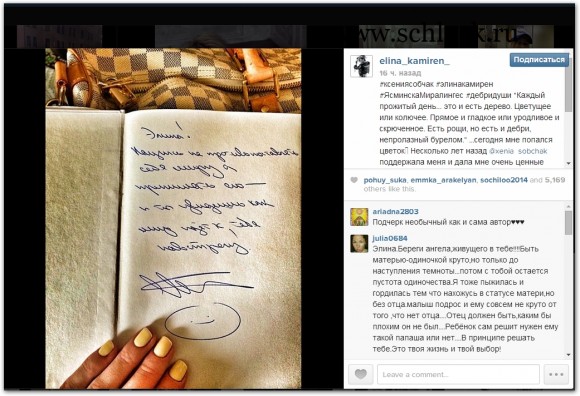 www.schl k.ru
elina_kamiren_
Подписаться
16 ч. назад
#ксениясобчак #элинакамирен
#ЯсминскаМиралингес #дебридуши "Каждый
прожитый день... это и есть дерево. Цветущее
или колючее. Прямое и гладкое или уродливое и
скрюченное. Есть рощи, но есть и дебри,
непролазный бурелом." ...сегодня мне попался
цветок! Несколько лет назад @xenia_sobchak
поддержала меня и дала мне очень ценные
pohuy_suka, emmka_arakelyan, sochiloo2014 and 5,169
others like this.
ariadna2803
Подчерк необычный как и сама автор♥♥♥
julia0684
Элина.Береги ангела,живущего в тебе!!!Быть
матерью-одиночкой круто,но только до
наступления темноты...потом с тобой остается
пустота одиночества.Я тоже пыжилась и
гордилась тем что нахожусь в статусе матери,но
без отца.малыш подрос и ему совсем не круто от
того ,что нет отца...Отец должен быть,каким бы
плохим он не был...Ребёнок сам решит нужен ему
такой папаша или нет...В принципе решать
тебе.Это твоя жизнь и твой выбор!
Leave a comment...